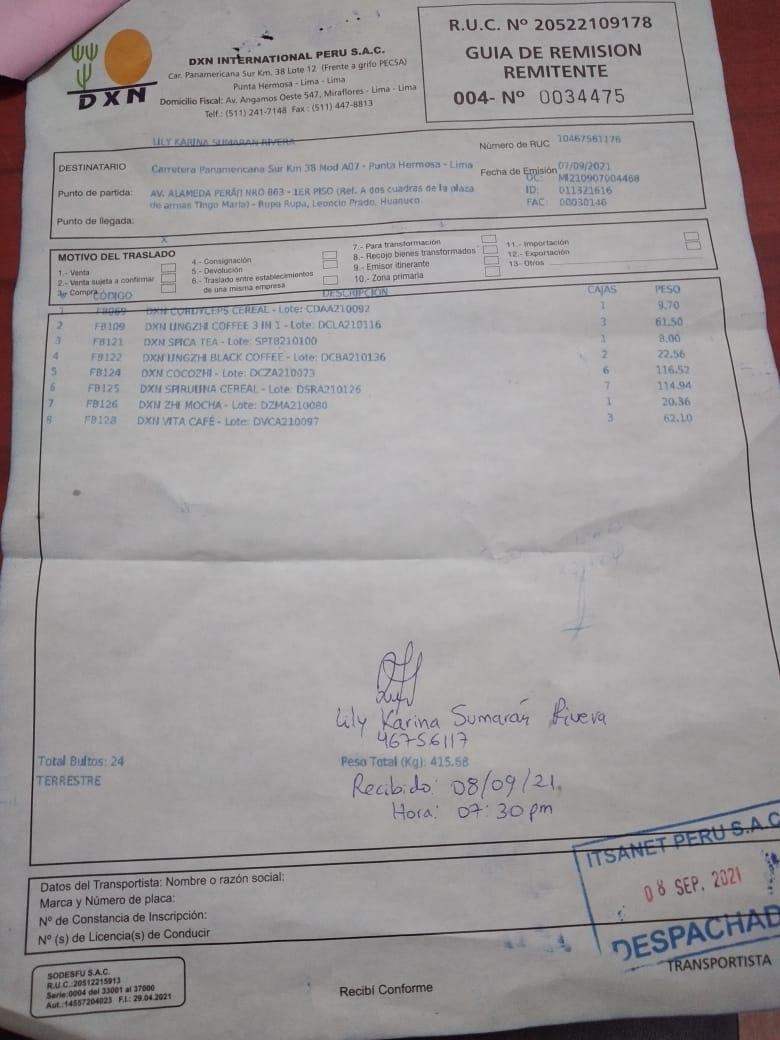 DXN
DXN INTERNATIONAL PERU S.A.C.
Car. Panamericana Sur Km. 38 Lote 12 (Frente a grifo PECSA)
Punta Hermosa - Lima - Lima
Domicilio Fiscal: Av. Angamos Oeste 547, Miraflores - Lima - Lima
Telf.: (511) 241-7148 Fax : (511) 447-8813
R.U.C. Nº 20522109178
GUIA DE REMISION
REMITENTE
004- Nº 0034475
LILY KARINA SUMARAN RIVERA
Número de RUC 10467561176
DESTINATARIO
Carretera Panamericana Sur Km 38 Mod A07 - Punta Hermosa - Lima
Fecha de Emisión 07/09/2021
Punto de partida: AV. ALAMEDA PERÁN NRO 863 - 1ER PISO (Ref. A dos cuadras de la plaza
de armas Tingo Maria) - Rupa Rupa, Leoncio Prado, Huanuco
OC: MI210907004468
ID: 011321616
FAC: 00030146
Punto de llegada:
X
MOTIVO DEL TRASLADO
1.- Venta
2.- Venta sujeta a confirmar
3.- Compra
4.- Consignación
5.- Devolución
6.- Traslado entre establecimientos
de una misma empresa
7.- Para transformación
8.- Recojo bienes transformados
9.- Emisor itinerante
10.- Zona primaria
11.- Importación
12.- Exportación
13- Otros
CÓDIGO DESCRIPCION CAJAS PESO
1 FB069 DXN CORDYCEPS CEREAL - Lote: CDAA210092 1 9.70
2 FB109 DXN LINGZHI COFFEE 3 IN 1 - Lote: DCLA210116 3 61.50
3 FB121 DXN SPICA TEA - Lote: SPTB210100 1 8.00
4 FB122 DXN LINGZHI BLACK COFFEE - Lote: DCBA210136 2 22.56
5 FB124 DXN COCOZHI - Lote: DCZA210073 6 116.52
6 FB125 DXN SPIRULINA CEREAL - Lote: DSRA210126 7 114.94
7 FB126 DXN ZHI MOCHA - Lote: DZMA210080 1 20.36
8 FB128 DXN VITA CAFÉ - Lote: DVCA210097 3 62.10
Lily Karina Sumarán Rivera
46756117
Total Bultos: 24
Peso Total (Kg): 415.68
TERRESTRE
Recibido: 08/09/21.
Hora: 07:30 pm
ITSANET PERU S.A.C
08 SEP. 2021
DESPACHAD
Datos del Transportista: Nombre o razón social:
Marca y Número de placa:
Nº de Constancia de Inscripción:
Nº (s) de Licencia(s) de Conducir
SODESFU S.A.C.
R.U.C.:20512215913
Serie:0004 del 33001 al 37000
Aut.:14557204023 F.I.: 29.04.2021
Recibí Conforme
TRANSPORTISTA